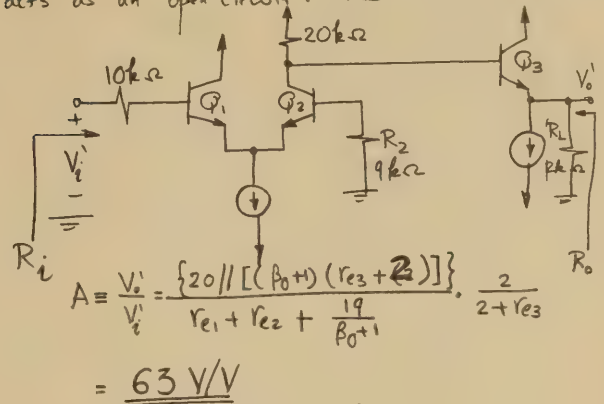 acts as an open circuit.
20kΩ
10kΩ
Q1
Q2
Q3
Vo'
+
Vi'
-
R2
9kΩ
RL
2kΩ
Ri
Ro
A ≡ Vo'/Vi' = {20 // [(β0+1) (re3 + 2)]} / (re1 + re2 + 19/(β0+1)) . 2/(2 + re3)
= 63 V/V